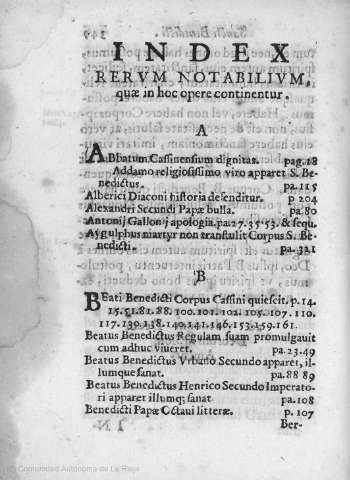 INDEX
RERVM NOTABILIVM,
quæ in hoc opere continentur.
A
ABbatum Cassinensium dignitas. pag.18
Addamo religiosissimo viro apparet S. Be-
nedictus. pa.115
Alberici Diaconi historia defenditur. p 204
Alexandri Secundi Papæ bulla. pa.80
Antonij Gallonij apologia. pa.27.35.53. & sequ.
Aygulphus martyr non transtulit Corpus S. Be-
nedicti. pa.321
B
BEati Benedicti Corpus Cassini quiescit. p.14.
15.51.81.88.100.101.102.105.107.110.
117.130.138.140.141.146.153.159.161.
Beatus Benedictus Regulam suam promulgauit
cum adhuc viueret. pa.23.49
Beatus Benedictus Vrbano Secundo apparet, il-
lumque sanat. pa.88 89
Beatus Benedictus Henrico Secundo Imperato-
ri apparet illumq; sanat pa.108
Benedicti Papæ Octaui litteræ. p.107
Ber-
Comunidad Autónoma de La Rioja